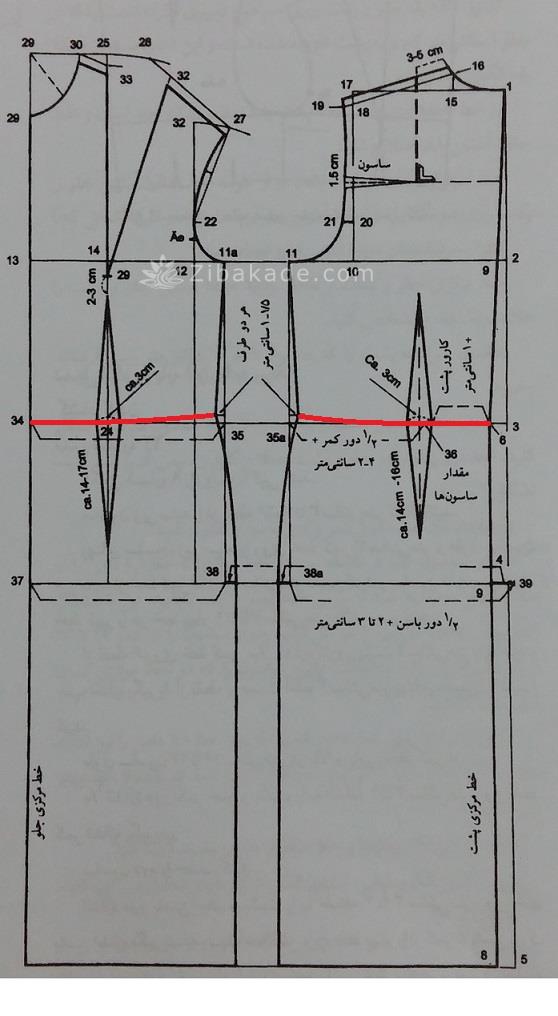 29
30
25
28
33
32
32
27
29
3-5 cm
16
17
15
1
19
18
ساسون
1.5 cm
22
21
20
Äe
14
11a
11
13
12
10
9
2
29
2-3 cm
Zibakade.com
هر دو طرف
۱-۱/۷۵ سانتی‌متر
کارور پشت
+۱ سانتی‌متر
ca.3cm
Ca. 3cm
34
24
35
35a
۱/۲ دور کمر +
۲-۴ سانتی‌متر
3
6
36
مقدار
ساسون‌ها
ca.14-17cm
ca.14cm -16cm
37
38
38a
4
39
9
۱/۲ دور باسن + ۲ تا ۳ سانتی‌متر
خط مرکزی جلو
خط مرکزی پشت
8
5